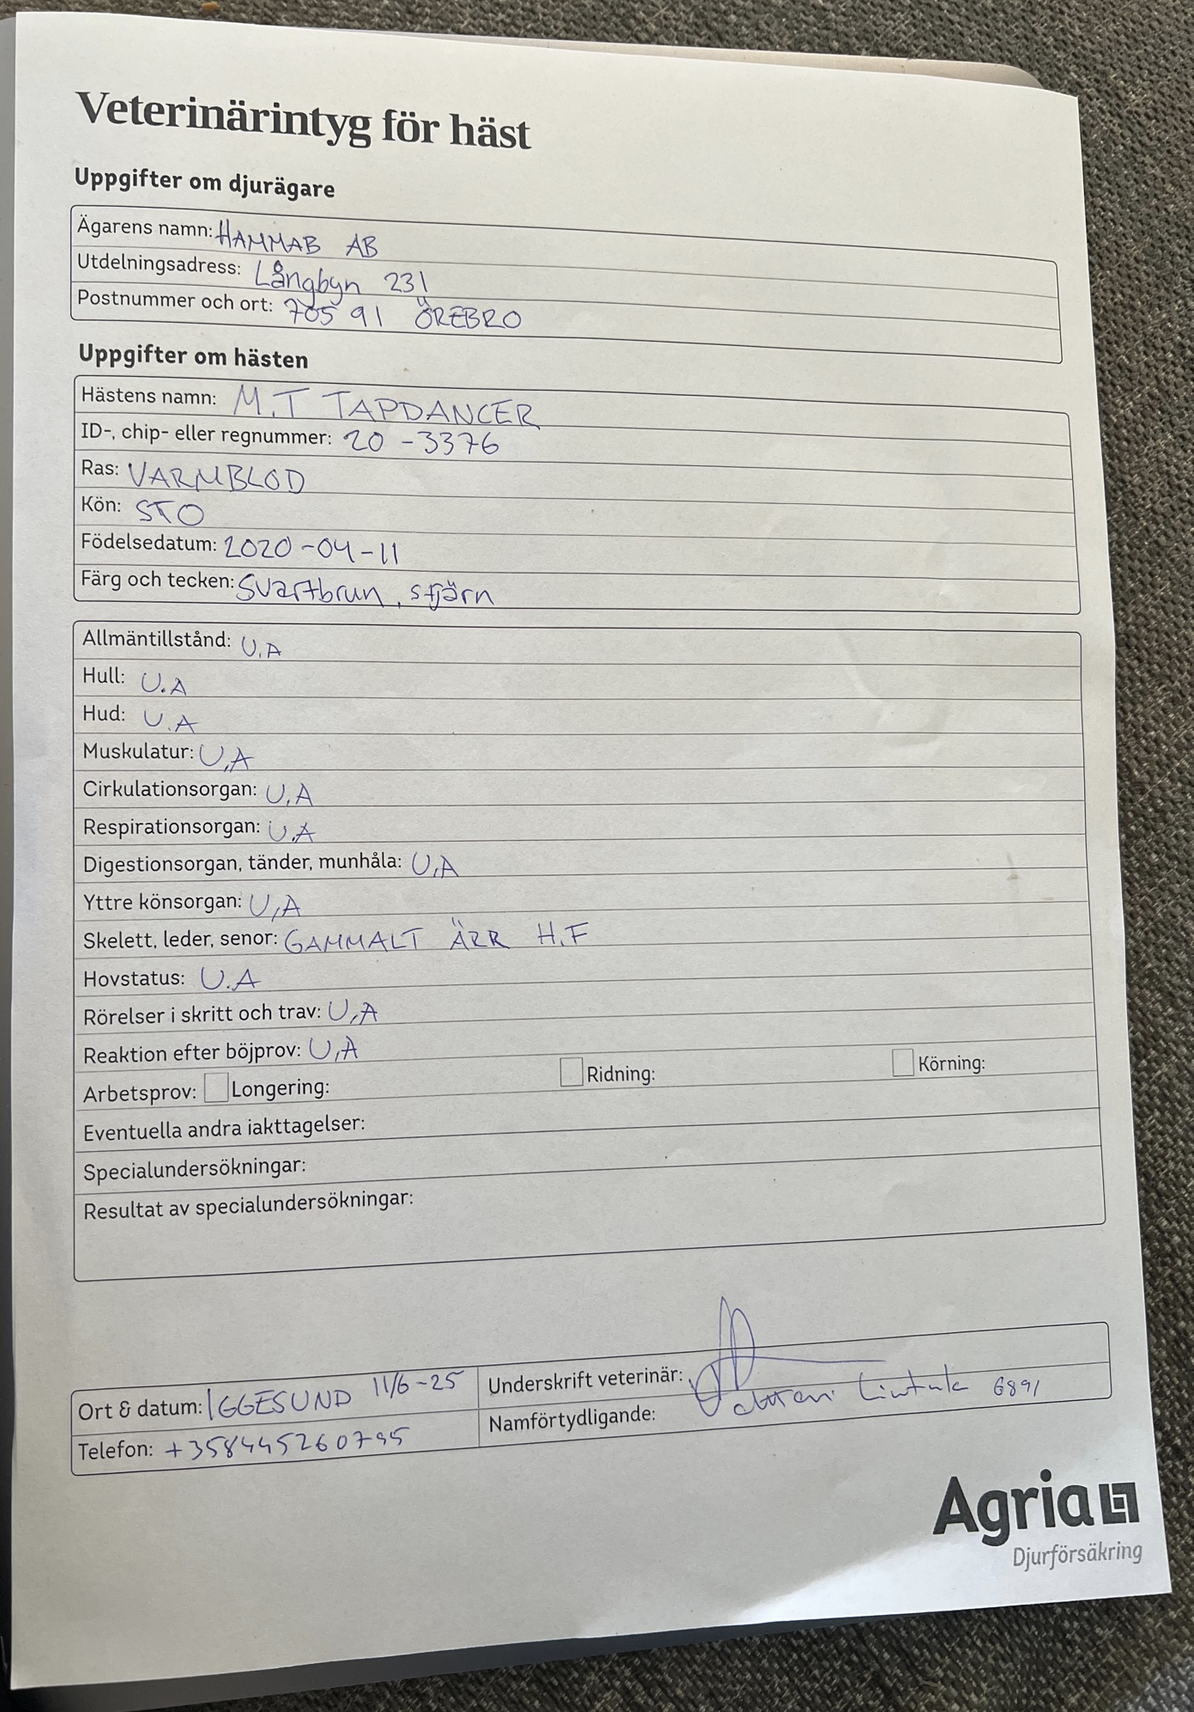 Veterinärintyg för häst
Uppgifter om djurägare
Ägarens namn: HAMMAB AB
Utdelningsadress: Långbyn 231
Postnummer och ort: 705 91 ÖREBRO
Uppgifter om hästen
Hästens namn: M.T TAPDANCER
ID-, chip- eller regnummer: 20-3376
Ras: VARMBLOD
Kön: STO
Födelsedatum: 2020-04-11
Färg och tecken: Svartbrun, stjärn
Allmäntillstånd: U.A
Hull: U.A
Hud: U.A
Muskulatur: U,A
Cirkulationsorgan: U,A
Respirationsorgan: U.A
Digestionsorgan, tänder, munhåla: U,A
Yttre könsorgan: U,A
Skelett, leder, senor: GAMMALT ÄRR H.F
Hovstatus: U.A
Rörelser i skritt och trav: U,A
Reaktion efter böjprov: U,A
Arbetsprov: Longering: Ridning: Körning:
Eventuella andra iakttagelser:
Specialundersökningar:
Resultat av specialundersökningar:
Ort & datum: IGGESUND 11/6-25 Underskrift veterinär:
Telefon: +358445260795 Namförtydligande: 6891
Agria
Djurförsäkring